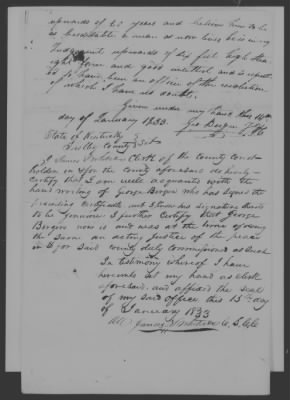 upwards of 60 years and believe him to be
as credible a man as now lives being in my
Judgment upwards of six feet high
form and good and is reputed
to have been an officer of the revolution
of which I have no doubt.
Given under my hand this 14th
day of January 1833. Geo Berger
State of Kentucky
County Sct
I James Clerk of the county court
holden in & for the county aforesaid do hereby
Certify that I am well acquainted with the
hand writing of George Berger who has signed the
preceding Certificate and I know his signature thereto
to be Genuine I further Certify that George
Berger now is and was at the time of giving
the Same an acting Justice of the peace
in & for said county duly commissioned as such
In testimony whereof I have
hereunto set my hand as Clerk
aforesaid and affixed the seal
of my said office this 15th day
of January 1833
Att. James